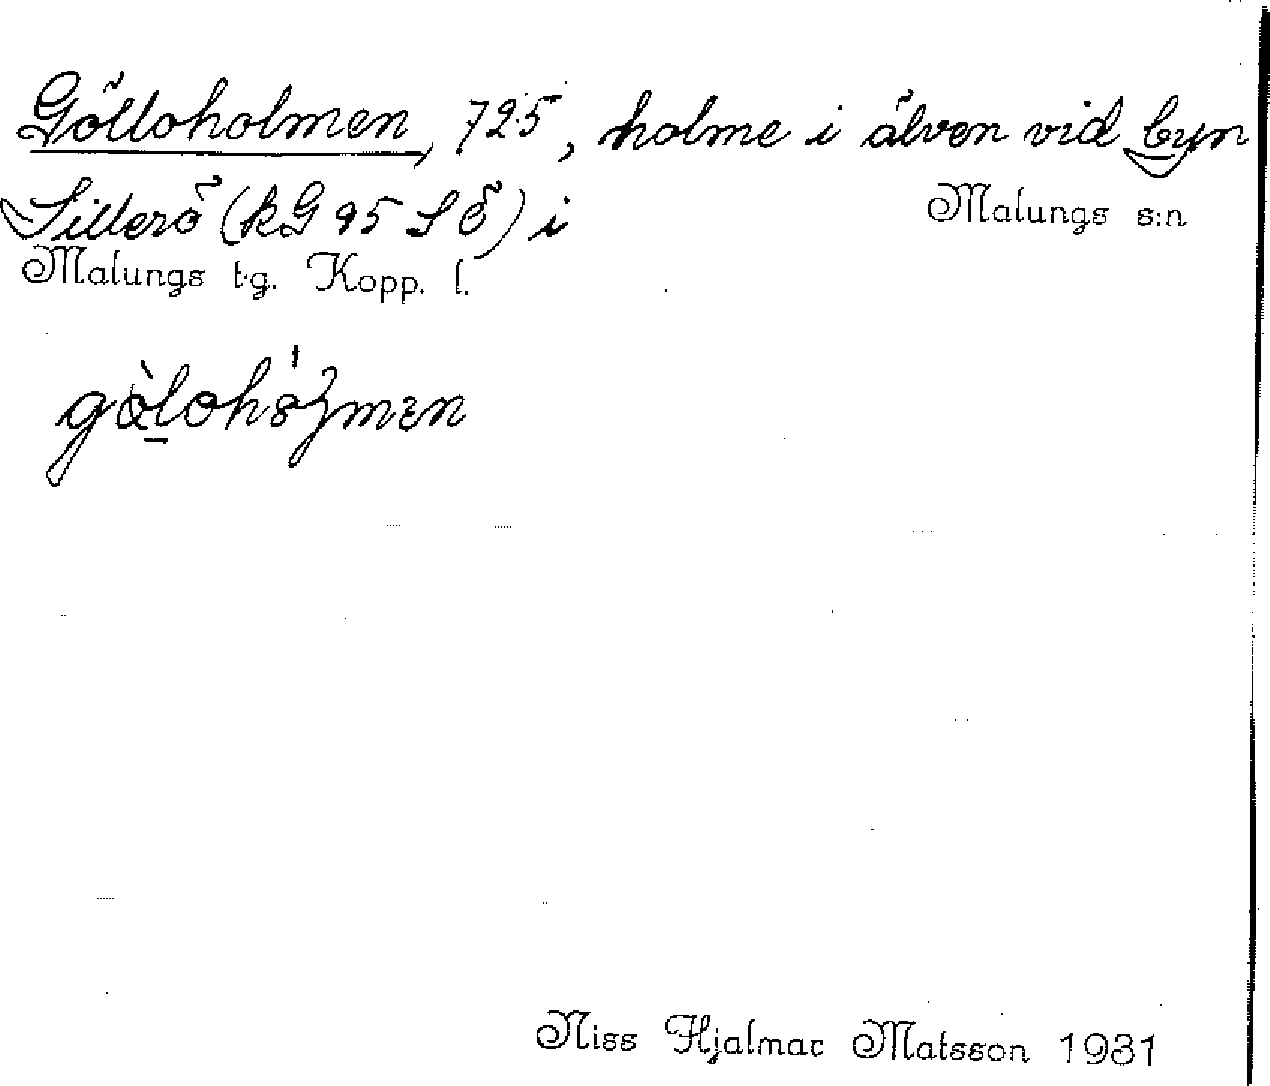 Gölloholmen, 725, holme i älven vid byn
Sillerö (kG 95 SÖ) i
Malungs s:n
Malungs t.g. Kopp. l.
Niss Hjalmar Matsson 1981